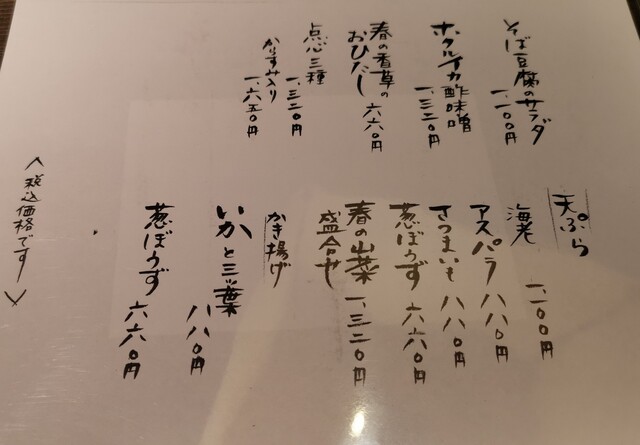 そば豆腐のサラダ 一、一〇〇円
ホタルイカ酢味噌 一、三二〇円
春の香草の
おひたし 六六〇円
点心三種
一、三二〇円
からすみ入り
一、六五〇円
天ぷら
海老 一、一〇〇円
アスパラ 八八〇円
さつまいも 八八〇円
葱ぼうず 六六〇円
春の山菜
盛合せ 一、三二〇円
かき揚げ
いかと三ッ葉
八八〇円
葱ぼうず 六六〇円
〈税込価格です〉